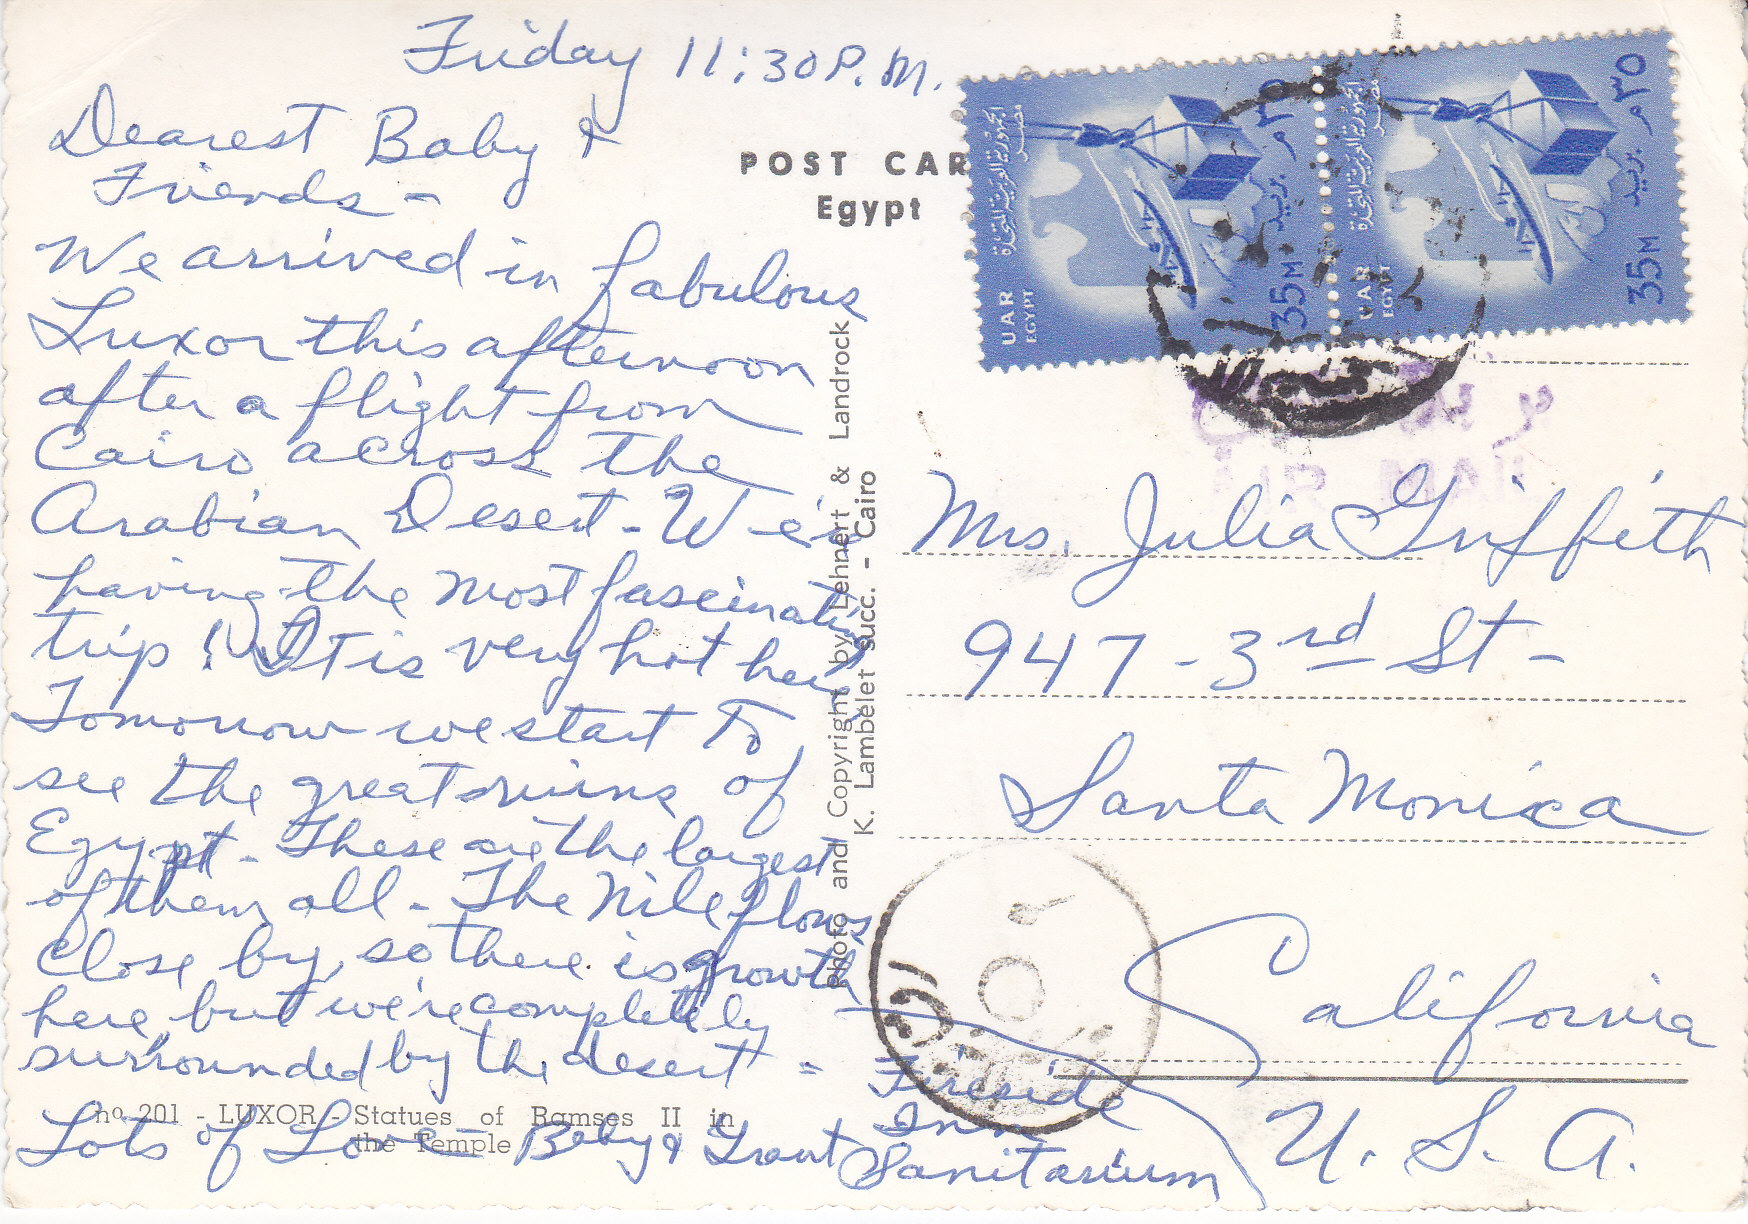 Friday 11:30 P.M.
Dearest Baby &
Friends -
We arrived in fabulous
Luxor this afternoon
after a flight from
Cairo across the
Arabian Desert - We're
having the most fascinating
trip! It is very hot here
Tomorrow we start to
see the great ruins of
Egypt - These are the largest
of them all - The Nile flows
close by, so there is growth
here, but we're completely
surrounded by the desert =
Lots of Love - Baby & Grant
POST CAR
Egypt
Photo and Copyright by Lehnert & Landrock
K. Lambelet succ. - Cairo
no 201 - LUXOR - Statues of Ramses II in
the Temple
الجمهورية العربية المتحدة
مصر
٣٥ م بريد
UAR
EGYPT
35 M
الجمهورية العربية المتحدة
مصر
٣٥ م بريد
UAR
EGYPT
35 M
Mrs. Julia Griffith
947 - 3rd St -
Santa Monica
California
U. S. A.
Fireside
Inn
Sanitarium